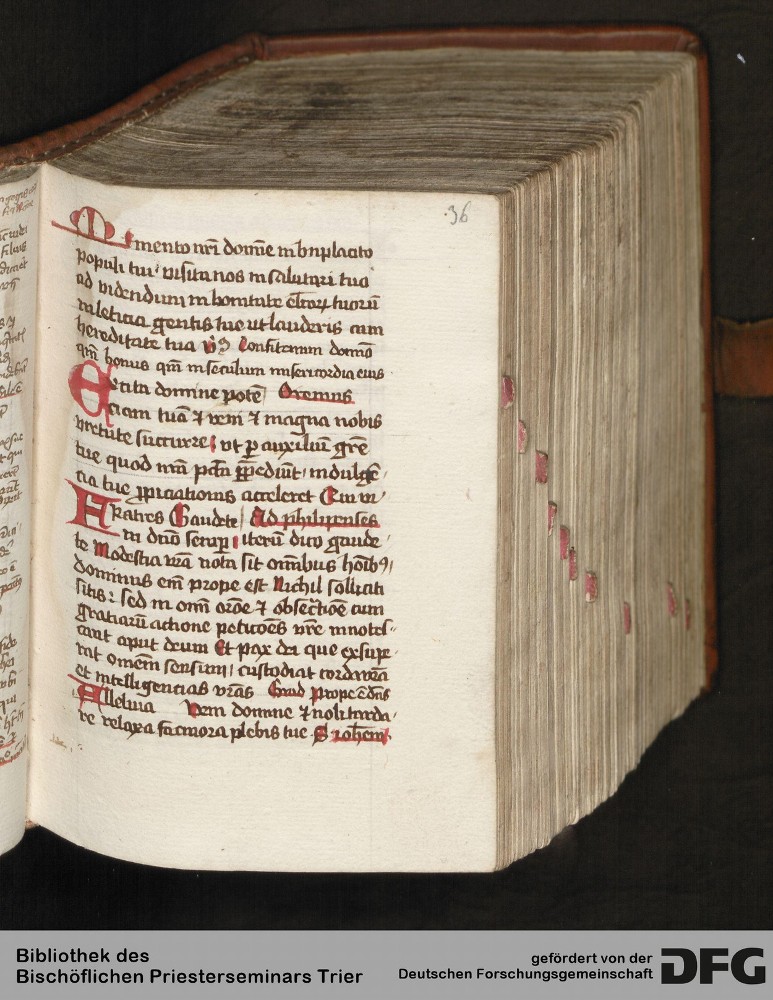 36
Memento nr̄i dom̄e in bn̄placito
populi tui visita nos in salutari tuo
ad videndum in bonitate el̄torꝝ tuorū
in leticia gentis tue ut lauderis cum
hereditate tua v̄s Confitemini domīo
qm̄ bonus qm̄ in seculum misericordia eius
Excita domine potē Oremus
ciam tuā ⁊ veni ⁊ magna nobis
virtute succurre ut p auxiliū gr̄e
tue quod nr̄a pct̄a p̄pediūt indulgē
cia tue ꝓpiciationis acceleret Qui vi
Fratres Gaudete Ad philipenses
in dn̄o semp iterū dico gaude
te Modestia vr̄a nota sit om̄ibus hoībꝰ
dominus em̄ prope est Nichil solliciti
sitis sed in om̄i or̄oe ⁊ obsecr̄tioē cum
gratiarū actione peticōes vr̄e innotes
cant aput deum Et pax dei que exsupe
rat omēm sensum custodiat corda vr̄a
et intelligencias vr̄as Grad Prope ē dn̄s
Alleluia Veni domine ⁊ noli tarda
re relaxa facinora plebis tue S iohem̄
Bibliothek des
Bischöflichen Priesterseminars Trier
gefördert von der
Deutschen Forschungsgemeinschaft
DFG